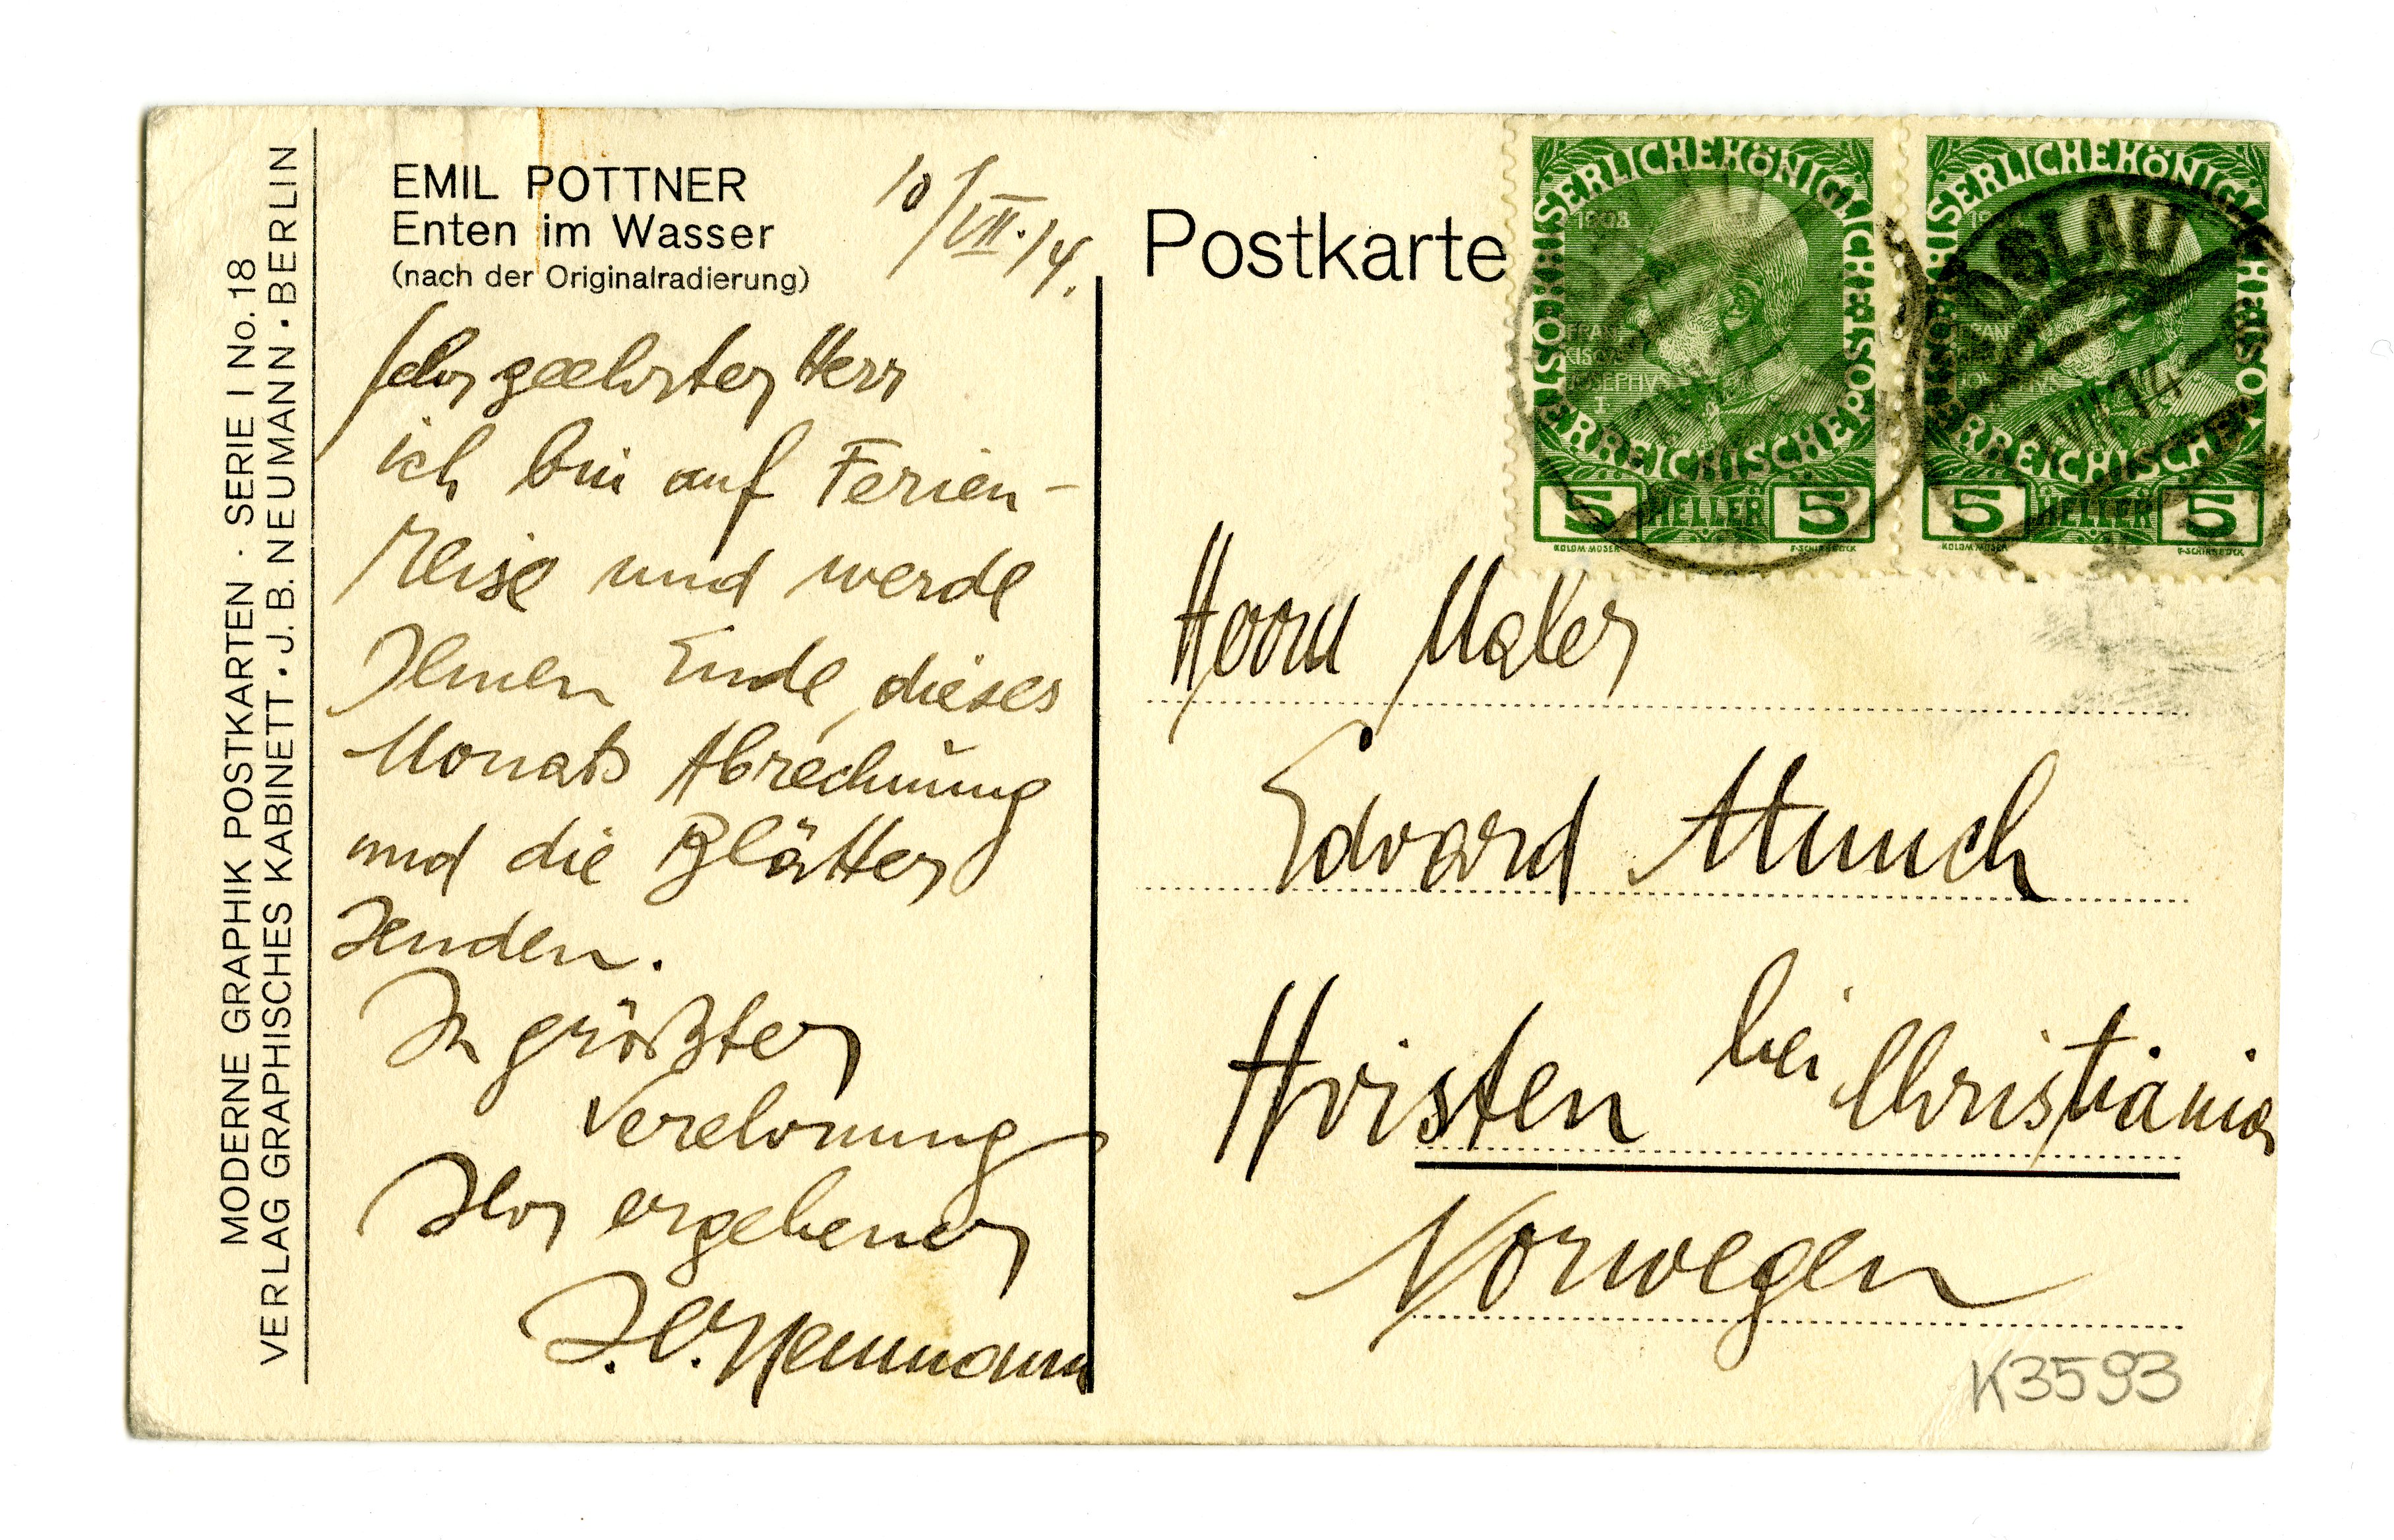 MODERNE GRAPHIK POSTKARTEN · SERIE I No. 18
VERLAG GRAPHISCHES KABINETT · J. B. NEUMANN · BERLIN
EMIL POTTNER
Enten im Wasser
(nach der Originalradierung)
10/VII.14.
Sehr geehrter Herr
ich bin auf Ferien-
reise und werde
Ihnen Ende dieses
Monats Abrechnung
und die Blätter
senden.
In größter
Verehrung
Ihr ergebener
J.B. Neumann
Postkarte
KAISERLICHE KÖNIGLICHE ÖSTERREICHISCHE POST
1908
FRAN
CISCVS
IOSEPHVS
I
5 HELLER 5
KOLOM. MOSER F. SCHIRNBÖCK
KAISERLICHE KÖNIGLICHE ÖSTERREICHISCHE POST
5 HELLER 5
KOLOM. MOSER F. SCHIRNBÖCK
ÖSLAU
VII 14
Herrn Maler
Edvard Munch
Hvisten bei Christiania
Norwegen
K3593